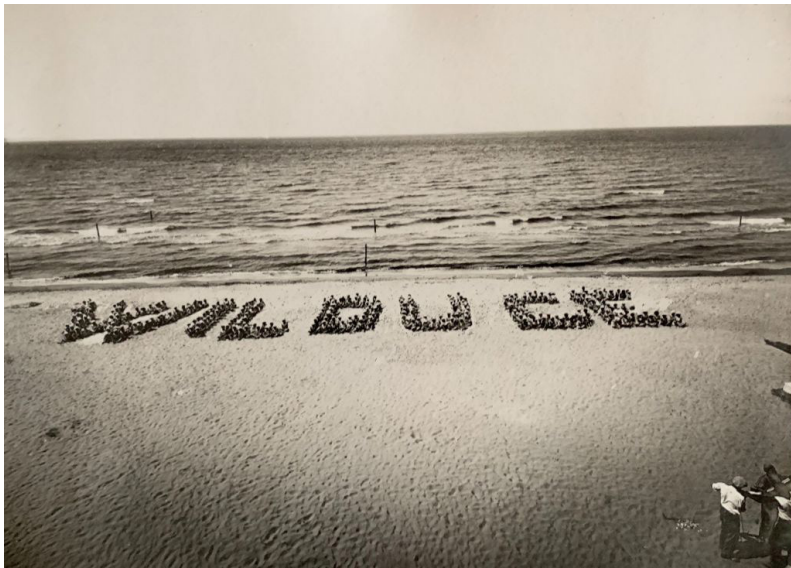 W IL DUCE